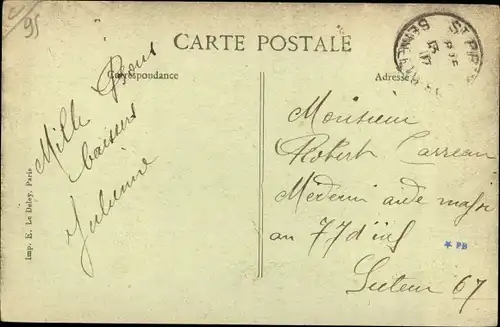 95
CARTE POSTALE
Correspondance
Adresse
Mille Bons
baisers
Julienne
Monsieur
Robert Carreau
Médecin aide major
au 77 d'inf
Secteur 67
* PB
Imp. E. Le Deley, Paris